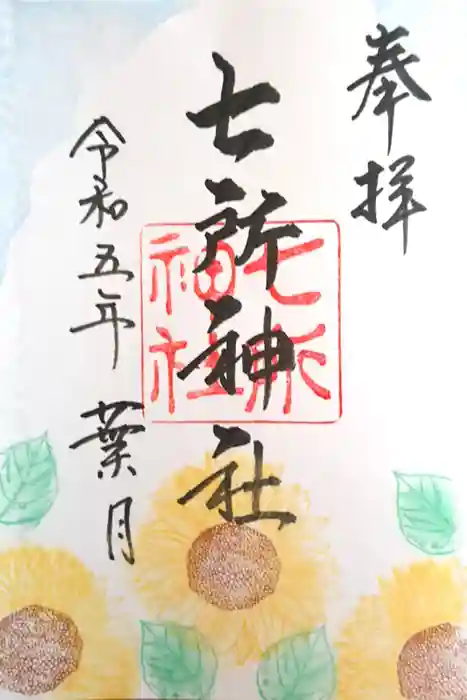 奉拝
七所神社
七所
神社
令和五年 葉月